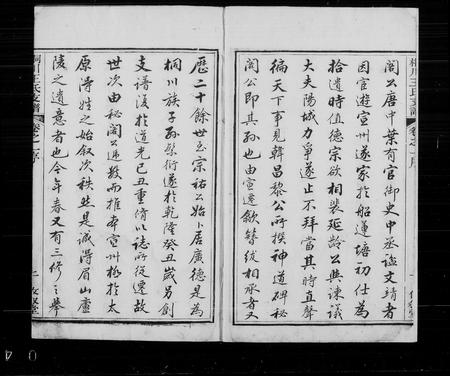 閣公唐中葉有官御史中丞諡文靖者
因官遊宣州遂家於船蓮塘初仕爲
拾遺時值德宗欲相裴延齡公與諫議
大夫陽城力爭遂止不拜當其時直聲
徧天下事見韓昌黎公所撰神道碑秘
閣公即其孫也由宣遷歙簪纓相承者又
歷二十餘世至宗祐公始卜居廣德是爲
桐川族子孫繁衍遂於乾隆癸丑歲另創
支譜復於道光己丑重脩以誌所從遷故
世次由秘閣公遞數而推本宣州拾於太
原得姓之始叙次秩然是誠得眉山廬
陵之遺意者也今年春又有三修之舉
桐川王氏支譜
卷之一序
二